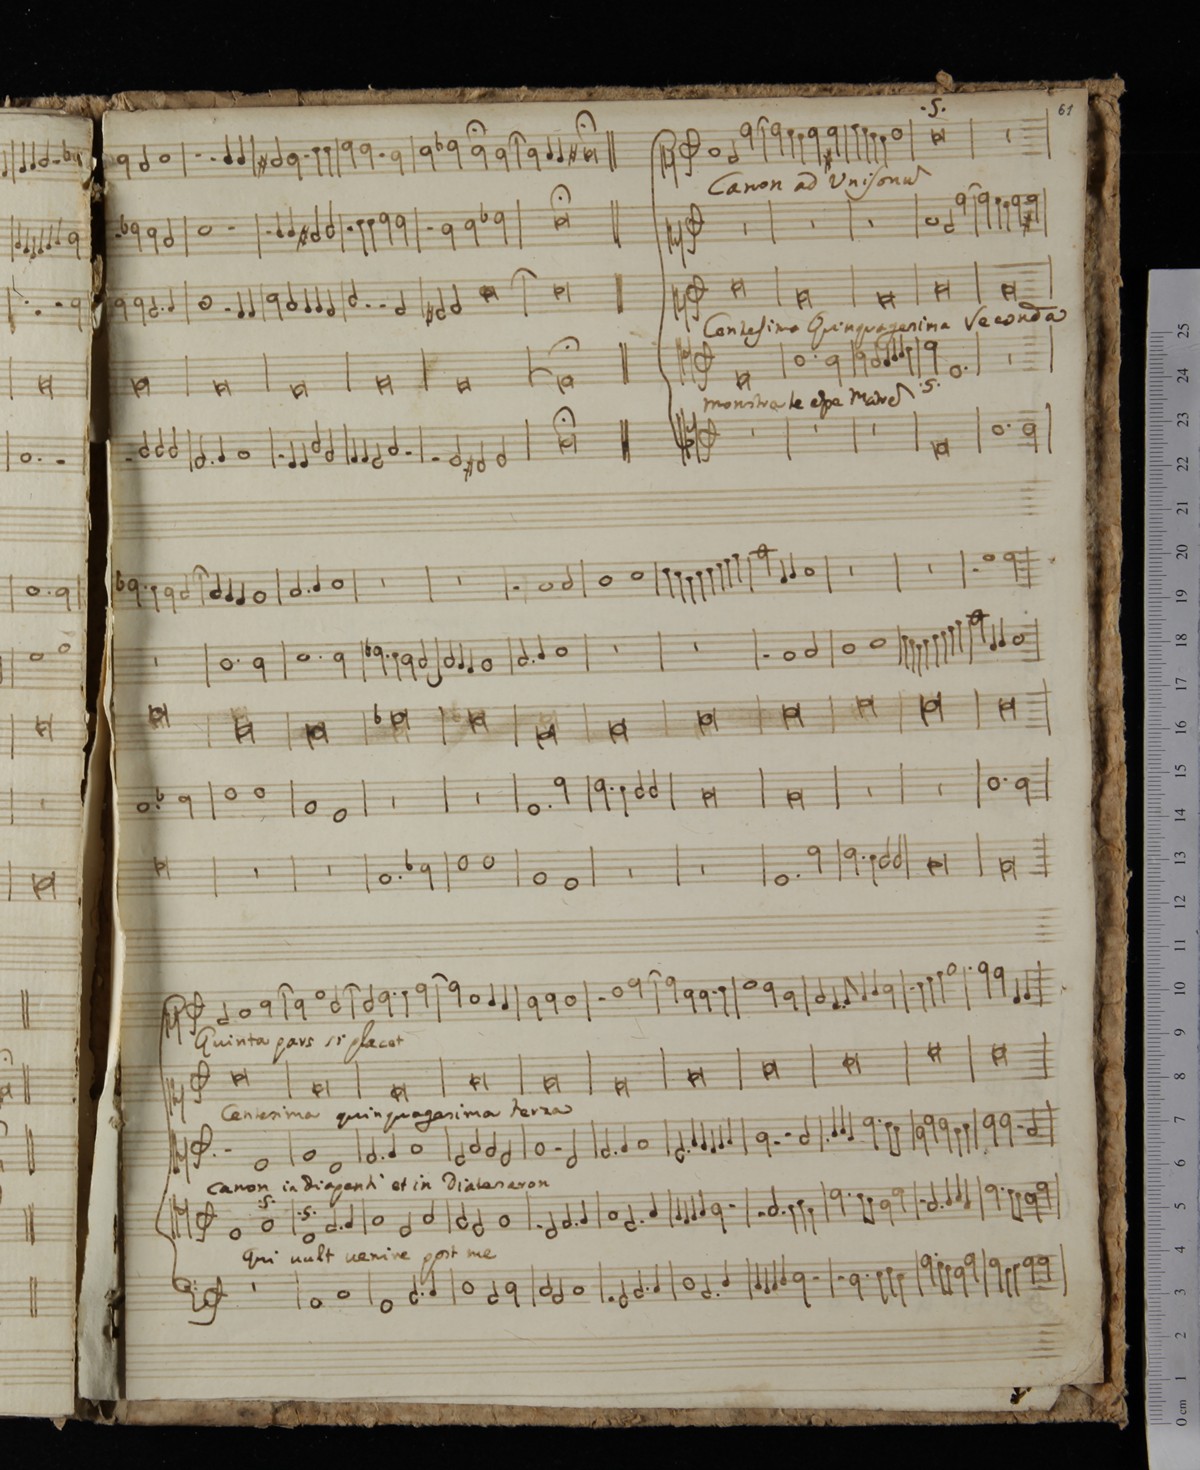 61
.S.
Canon ad Unisonū
Centesima Quinquagesima Seconda
monstra te esse Matrē .S.
Quinta pars si placet
Centesima quinquagesima terza
Canon in diapenti et in Diatesaron
.S.
.S.
Qui uult uenire post me
25
24
23
22
21
20
19
18
17
16
15
14
13
12
11
10
9
8
7
6
5
4
3
2
1
0 cm